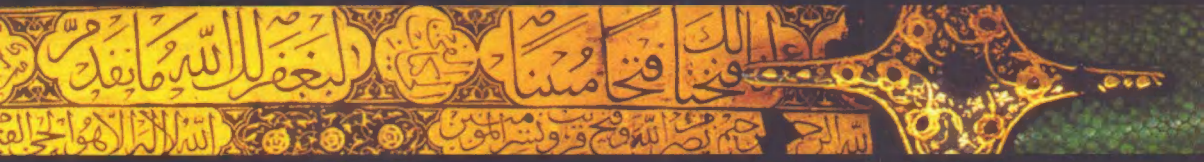 انا فتحنا لك فتحا مبينا ليغفر لك الله ما تقدم
الله الرحمن الرحيم نصر من الله وفتح قريب وبشر المؤمنين الله لا اله الا هو الحي القيوم